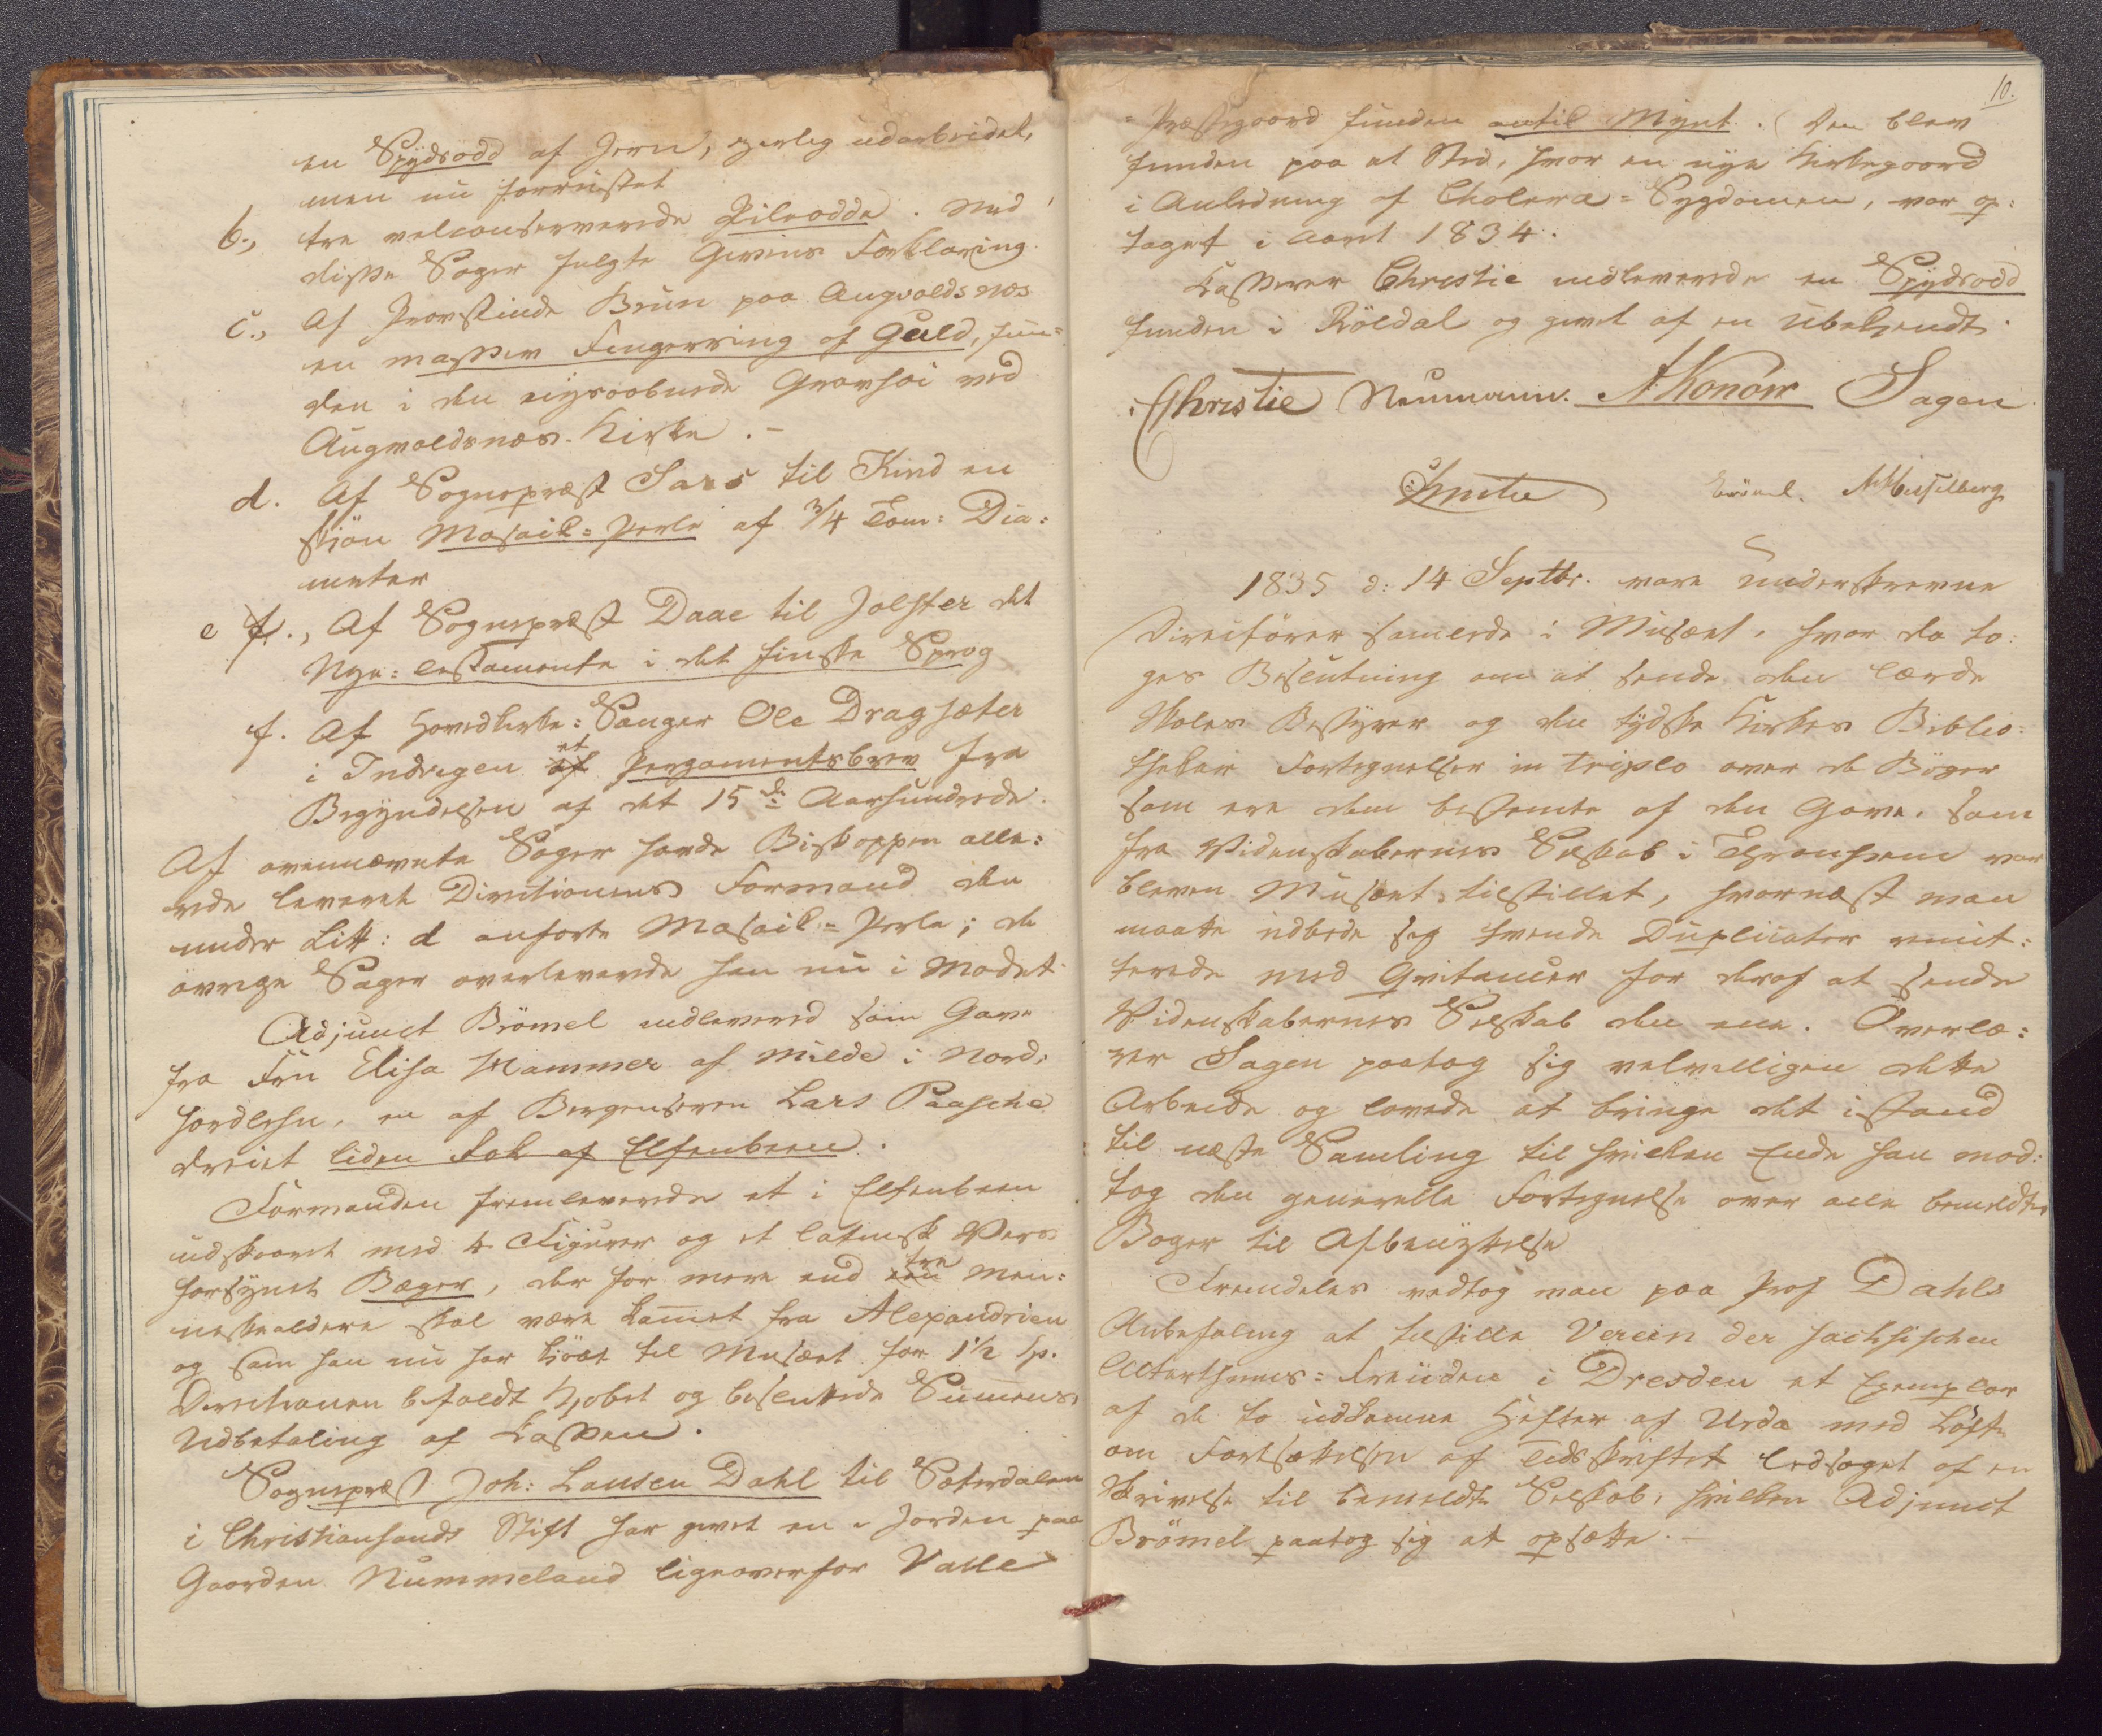 en Spydsodd af Jern, zirlig udarbeidet,
men nu forrustet
b., tre velconserverede Pileodde. Med
disse Sager fulgte Giverens Forklaring.
c., Af Provstinde Brun paa Augvaldsnæs
en massiv Fingerring af Guld, fun-
den i den nysaabnede Gravhøi ved
Augvaldsnæs Kirke. -
d. Af Sognepræst Sars til Kind en
skjön Mosaik-Perle af 3/4 Tom: Dia-
meter
e f., Af Sognepræst Daae til Jolster det
Nye-Testamente i det finske Sprog
f. Af Hovedkirke-Sanger Ole Dragsæter
i Indvigen et Pergamentsbrev fra
Begyndelsen af det 15de Aarhundrede.
Af ovennævnte Sager havde Biskoppen alle-
rede leveret Directionens Formand den
under Litt: d anførte Mosaik-Perle; de
øvrige Sager overleverede han nu i Mødet.
Adjunct Brömel indleverede som Gave
fra Fru Elisa Hammer af Milde i Nord-
hordlehn, en af Bergenseren Lars Paasche
dreiet liden Kok af Elfenbeen.
Formanden fremleverede et i Elfenbeen
udskaaret med 4 Figurer og et latinsk Vers
forsynet Bæger, der for mere end tre Men-
neskealdere skal være kom̄et fra Alexandrien
og som han nu har kiöbt til Musæet for 1 1/2 Sp.
Directionen bifaldt Kjøbet og besluttede Sum̄ens
Udbetaling af Kassen.
Sognepræst Joh: Lausen Dahl til Sæterdalen
i Christiansands Stift har givet en i Jorden paa
Gaarden Nummeland ligeoverfor Valle
10.
Præstegaard funden antik Mynt. (Den blev
funden paa et Sted, hvor en nye Kirkegaard
i Anledning af Cholera-Sygdommen, var op-
taget i Aaret 1834.
Kasserer Christie indleverede en Spydsodd
funden i Röldal og givet af en Ubekjendt.
Christie Neumann. A Konow Sagen
Brömel.
1835 d: 14 Septbr. vare underskrevne
Directörer samlede i Musæet, hvor da to-
ges Beslutning om at sende den lærde
Skoles Bestyrer og den tydske Kirkes Biblio-
thekair Fortegnelser in triplo over de Böger
som ere dem bestemte af den Gave, som
fra Videnskabernes Selskab i Thronhjem var
bleven Musæet tilstillet, hvornæst man
maatte udbede sig tvende Duplicater remit-
terede med Qvitancer for deraf at sende
Videnskabernes Selskab den ene. Overlæ-
rer Sagen paatog sig velvilligen dette
Arbeide og lovede at bringe det istand
til næste Samling til hvilken Ende han mod-
tog den generelle Fortegnelse over alle bemeldte
Bøger til Afbenyttelse
Fremdeles vedtog man paa Prof Dahls
Anbefaling at tilstille Verein der sachsischen
Alterthums-Freunden i Dresden et Exemplar
af de to udkomne Hefter af Urda med Löfte
om Fortsættelsen af Tidsskriftet ledsaget af en
Skrivelse til bemeldte Selskab, hvilken Adjunct
Brömel paatog sig at opsætte. -